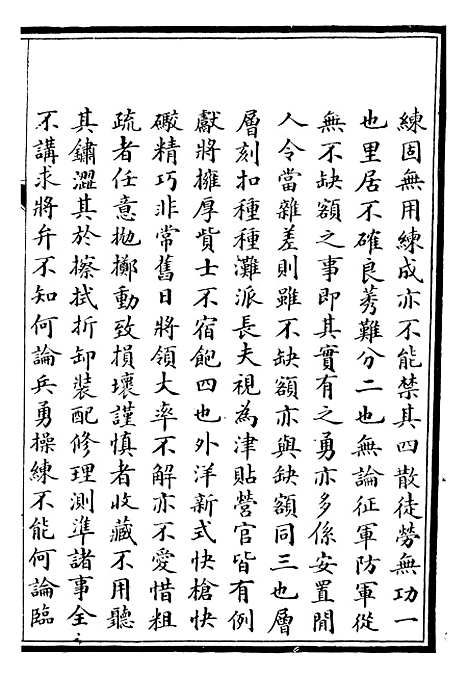 練固無用練成亦不能禁其四散徒勞無功一
也里居不確良莠難分二也無論征軍防軍從
無不缺額之事即其實有之勇亦多係安置閒
人令當雜差則雖不缺額亦與缺額同三也層
層刻扣種種灘派長夫視為津貼營官皆有例
獻將擁厚貲士不宿飽四也外洋新式快槍快
礮精巧非常舊日將領大率不解亦不愛惜粗
疏者任意拋擲動致損壞謹慎者收藏不用聽
其鏽澀其於擦拭折卸裝配修理測準諸事全
不講求將弁不知何論兵勇操練不能何論臨